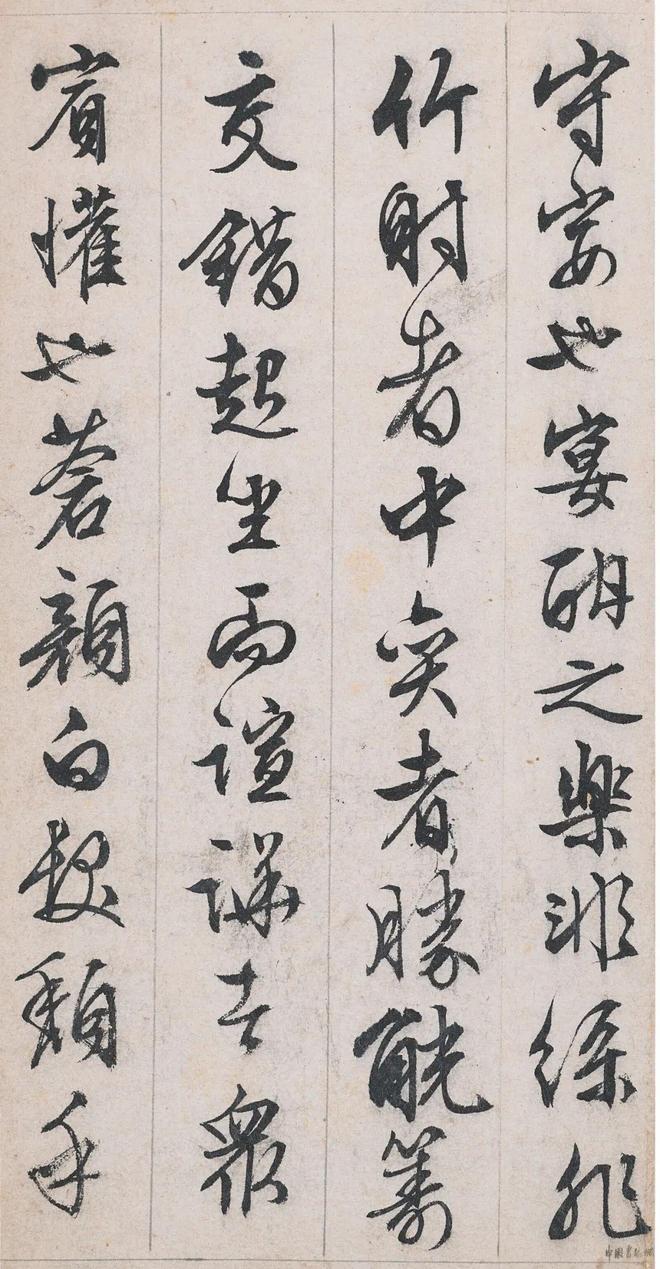 守宴也宴酣之樂非絲非
竹射者中奕者勝觥籌
交錯起坐而諠譁者衆
賓懽也蒼顏白髮頹乎